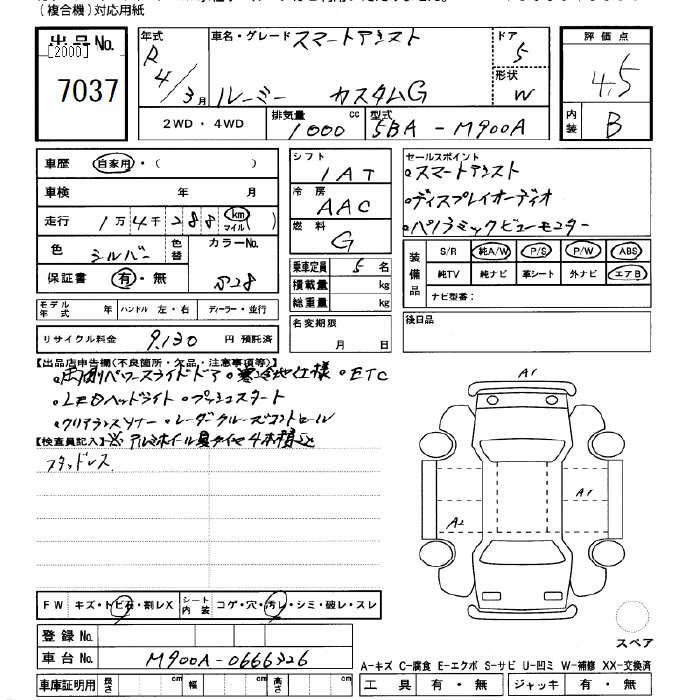 (複合機)対応用紙
出品No. [2000] 7037
年式 R4/3月
車名・グレード スマートアシスト
ルーミー カスタムG
ドア 5
形状 W
評価点 4.5
内装 B
2WD・4WD
排気量 1000 cc
型式 5BA-M900A
車歴 自家用・( )
車検 年 月
走行 1万4千288 km マイル
色 シルバー 色替
カラーNo. S28
保証書 有・無
モデル年式 年 ハンドル 左・右 ディーラー・並行
リサイクル料金 9,130 円 預託済
シフト IAT
冷房 AAC
燃料 G
乗車定員 5 名
積載量 kg
総重量 kg
名変期限 月 日
セールスポイント
・スマートアシスト
・ディスプレイオーディオ
・パノラミックビューモニター
装備品 S/R 純A/W P/S P/W ABS
純TV 純ナビ 革シート 外ナビ エアB
ナビ型番:
後日品
【出品店申告欄(不良箇所・欠品・注意事項等)】
・両側パワースライドドア ・寒冷地仕様 ・ETC
・LEDヘッドライト ・プッシュスタート
・クリアランスソナー ・レーダークルーズコントロール
【検査員記入】※アルミホイール夏タイヤ4本積込
スタッドレス
A1
A1
A2
FW キズ・トビ石・割レX シート内装 コゲ・穴・汚レ・シミ・破レ・スレ
登録No.
車台No. M900A-0666326
車庫証明用 長さ cm 幅 cm 高さ cm
スペア
A-キズ C-腐食 E-エクボ S-サビ U-凹ミ W-補修 XX-交換済
工具 有・無 ジャッキ 有・無